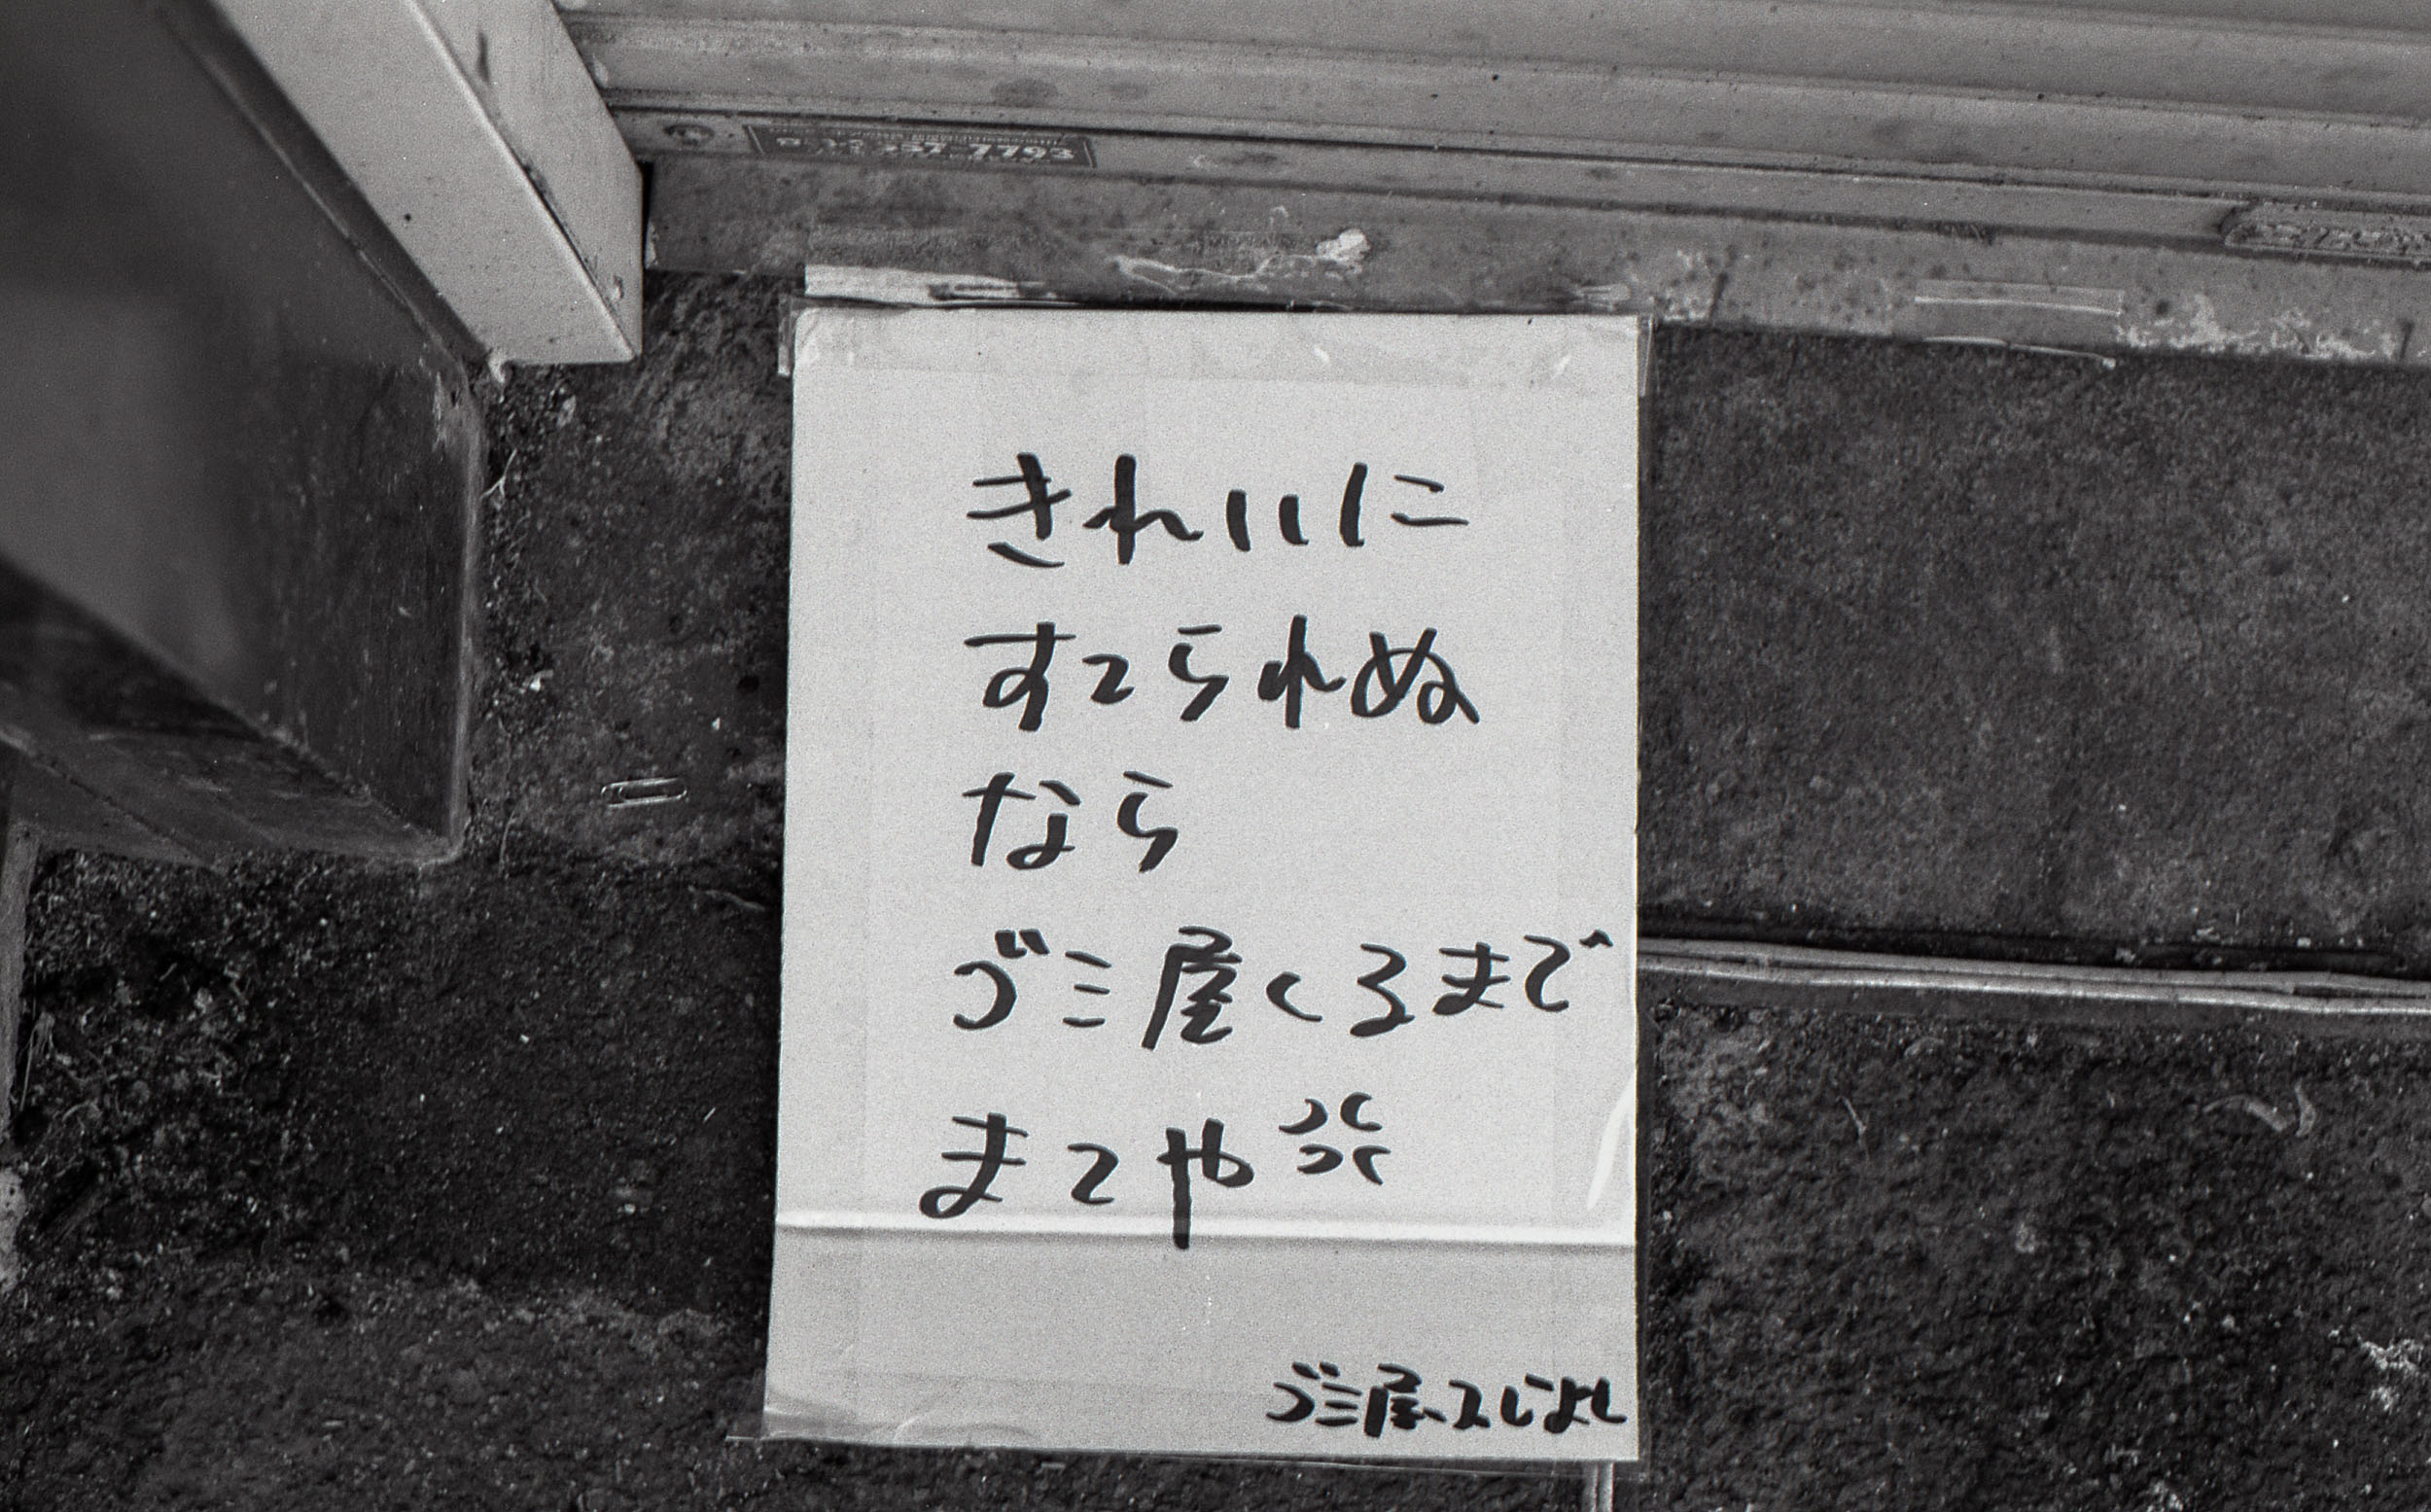 きれいに
すてられぬ
なら
ゴミ屋くるまで
まてや💢
ゴミ屋